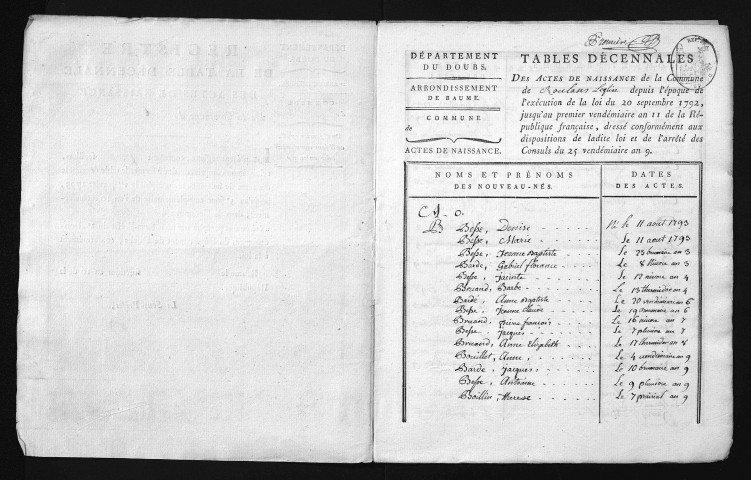 Première
DÉPARTEMENT
DU DOUBS.
ARRONDISSEMENT
DE BAUME.
COMMUNE
de
ACTES DE NAISSANCE.
TABLES DÉCENNALES
DES ACTES DE NAISSANCE de la Commune
de Roulans l'église depuis l'époque de
l'exécution de la loi du 20 septembre 1792,
jusqu'au premier vendémiaire an 11 de la Ré-
publique française, dressé conformément aux
dispositions de ladite loi et de l'arrêté des
Consuls du 25 vendémiaire an 9.
NOMS ET PRÉNOMS
DES NOUVEAU-NÉS.
DATES
DES ACTES.
A. 0.
B Besse, Desirée né le 11 aout 1793
Besse, Marie Le 11 aout 1793
Besse, Jeanne Baptiste Le 23 brumaire an 3
Barde, Gabriel florance Le 8 thivose an 3
Besse, Jacinte Le 12 nivose an 4
Bruand, Barbe Le 13 thermidor an 4
Bardé, Anne Baptiste Le 20 vendémiaire an 6
Besse, Jeanne Claude Le 19 brumaire an 6
Bruand, pierre françois Le 16 nivose an 7
Besse, Jacques Le 7 pluviose an 7
Bruand, Anne Elizabeth Le 17 thermidor an 8
Bouillet, Anne Le 4 vendemiaire an 9
Barde, Jacques Le 10 brumaire an 9
Besse, Antoinne Le 9 pluviose an 9
Boillin, therese Le 7 prairial an 9